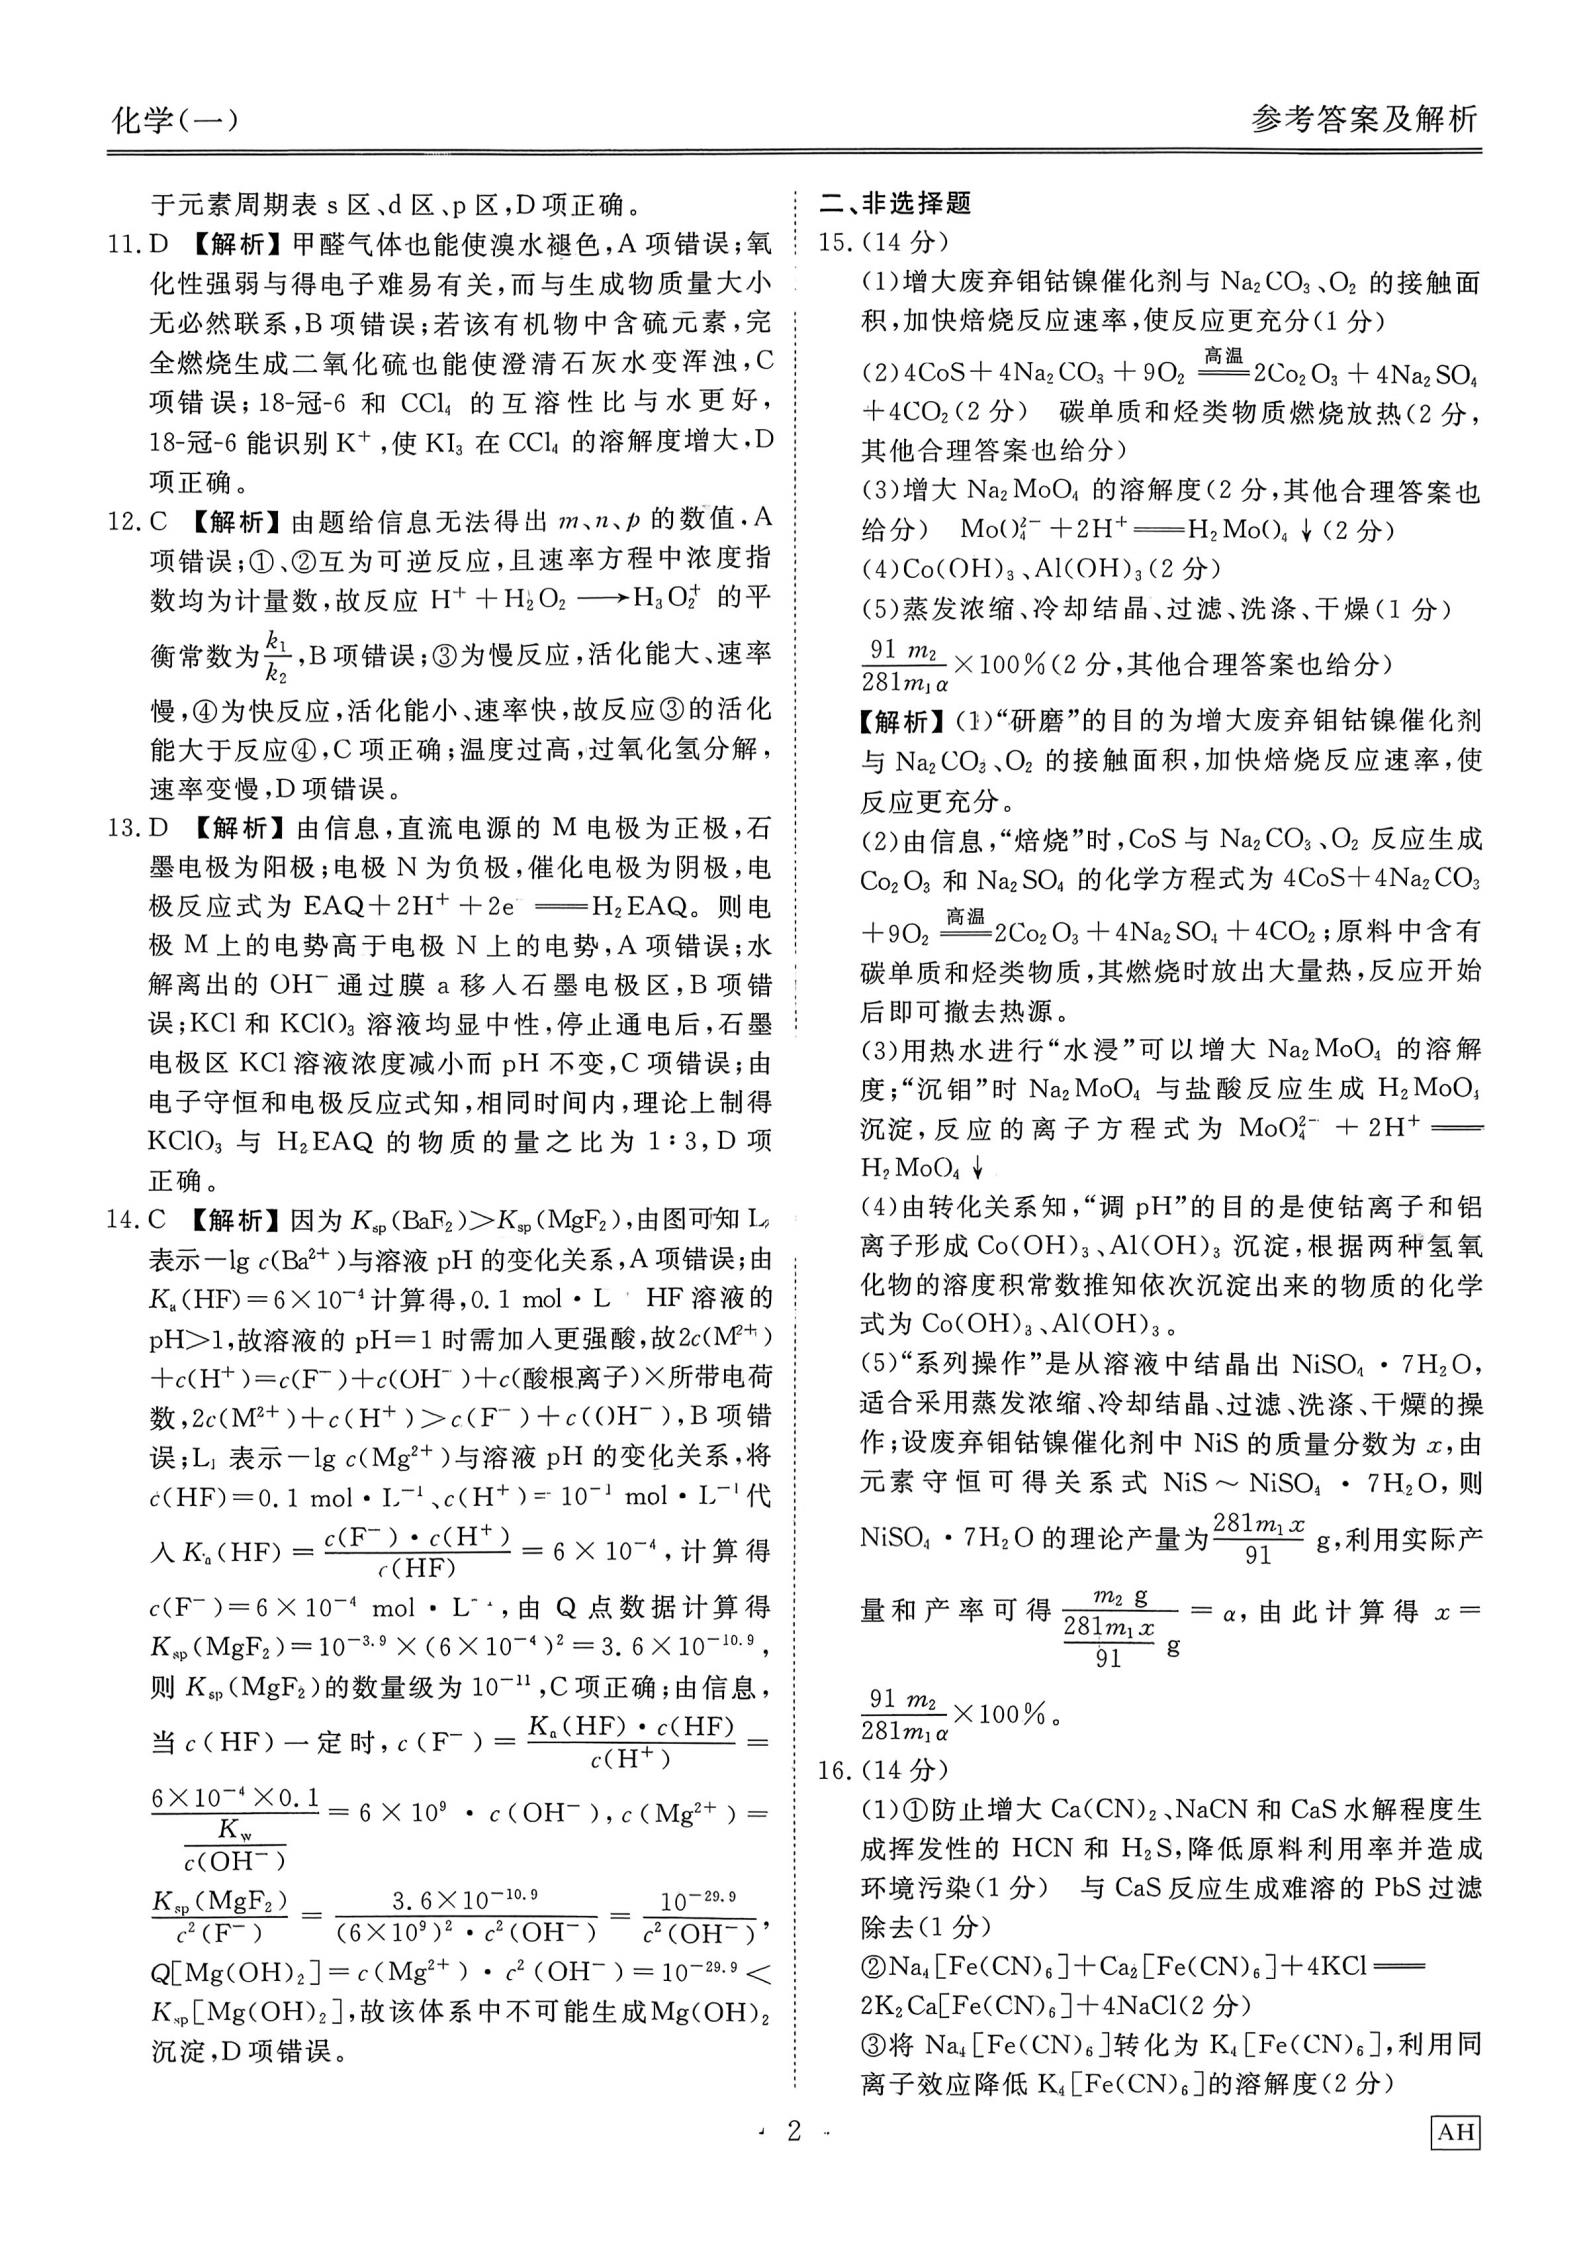 化学(一)
参考答案及解析
于元素周期表 s 区、d 区、p 区,D 项正确。
11. D 【解析】甲醛气体也能使溴水褪色,A 项错误;氧
化性强弱与得电子难易有关,而与生成物质量大小
无必然联系,B 项错误;若该有机物中含硫元素,完
全燃烧生成二氧化硫也能使澄清石灰水变浑浊,C
项错误;18-冠-6 和 CCl₄ 的互溶性比与水更好,
18-冠-6 能识别 K⁺,使 KI₃ 在 CCl₄ 的溶解度增大,D
项正确。
12. C 【解析】由题给信息无法得出 m、n、p 的数值,A
项错误;①、②互为可逆反应,且速率方程中浓度指
数均为计量数,故反应 H⁺+H₂O₂⟶H₃O₂⁺ 的平
衡常数为k₁/k₂,B 项错误;③为慢反应,活化能大、速率
慢,④为快反应,活化能小、速率快,故反应③的活化
能大于反应④,C 项正确;温度过高,过氧化氢分解,
速率变慢,D 项错误。
13. D 【解析】由信息,直流电源的 M 电极为正极,石
墨电极为阳极;电极 N 为负极,催化电极为阴极,电
极反应式为 EAQ+2H⁺+2e⁻══H₂EAQ。则电
极 M 上的电势高于电极 N 上的电势,A 项错误;水
解离出的 OH⁻ 通过膜 a 移入石墨电极区,B 项错
误;KCl 和 KClO₃ 溶液均显中性,停止通电后,石墨
电极区 KCl 溶液浓度减小而 pH 不变,C 项错误;由
电子守恒和电极反应式知,相同时间内,理论上制得
KClO₃ 与 H₂EAQ 的物质的量之比为 1∶3,D 项
正确。
14. C 【解析】因为 Kₛₚ(BaF₂)>Kₛₚ(MgF₂),由图可知 L₀
表示−lg c(Ba²⁺)与溶液 pH 的变化关系,A 项错误;由
Kₐ(HF)=6×10⁻⁴计算得,0.1 mol·L HF 溶液的
pH>1,故溶液的 pH=1 时需加入更强酸,故2c(M²⁺)
+c(H⁺)=c(F⁻)+c(OH⁻)+c(酸根离子)×所带电荷
数,2c(M²⁺)+c(H⁺)>c(F⁻)+c(OH⁻),B 项错
误;L₁ 表示−lg c(Mg²⁺)与溶液 pH 的变化关系,将
c(HF)=0.1 mol·L⁻¹、c(H⁺)=10⁻¹ mol·L⁻¹代
入 Kₐ(HF)=c(F⁻)·c(H⁺)/c(HF)=6×10⁻⁴,计算得
c(F⁻)=6×10⁻⁴ mol·L⁻¹,由 Q 点数据计算得
Kₛₚ(MgF₂)=10⁻³·⁹×(6×10⁻⁴)²=3.6×10⁻¹⁰·⁹,
则 Kₛₚ(MgF₂)的数量级为 10⁻¹¹,C 项正确;由信息,
当 c(HF)一定时,c(F⁻)=Kₐ(HF)·c(HF)/c(H⁺)=
6×10⁻⁴×0.1/(K_w/c(OH⁻))=6×10⁹·c(OH⁻),c(Mg²⁺)=
Kₛₚ(MgF₂)/c²(F⁻)=3.6×10⁻¹⁰·⁹/((6×10⁹)²·c²(OH⁻))=10⁻²⁹·⁹/c²(OH⁻),
Q[Mg(OH)₂]=c(Mg²⁺)·c²(OH⁻)=10⁻²⁹·⁹<
Kₛₚ[Mg(OH)₂],故该体系中不可能生成Mg(OH)₂
沉淀,D 项错误。
二、非选择题
15. (14 分)
(1)增大废弃钼钴镍催化剂与 Na₂CO₃、O₂ 的接触面
积,加快焙烧反应速率,使反应更充分(1 分)
(2)4CoS+4Na₂CO₃+9O₂ ══高温══ 2Co₂O₃+4Na₂SO₄
+4CO₂(2 分) 碳单质和烃类物质燃烧放热(2 分,
其他合理答案也给分)
(3)增大 Na₂MoO₄ 的溶解度(2 分,其他合理答案也
给分) MoO₄²⁻+2H⁺══H₂MoO₄↓(2 分)
(4)Co(OH)₃、Al(OH)₃(2 分)
(5)蒸发浓缩、冷却结晶、过滤、洗涤、干燥(1 分)
91 m₂/281m₁α×100%(2 分,其他合理答案也给分)
【解析】(1)“研磨”的目的为增大废弃钼钴镍催化剂
与 Na₂CO₃、O₂ 的接触面积,加快焙烧反应速率,使
反应更充分。
(2)由信息,“焙烧”时,CoS 与 Na₂CO₃、O₂ 反应生成
Co₂O₃ 和 Na₂SO₄ 的化学方程式为 4CoS+4Na₂CO₃
+9O₂ ══高温══ 2Co₂O₃+4Na₂SO₄+4CO₂;原料中含有
碳单质和烃类物质,其燃烧时放出大量热,反应开始
后即可撤去热源。
(3)用热水进行“水浸”可以增大 Na₂MoO₄ 的溶解
度;“沉钼”时 Na₂MoO₄ 与盐酸反应生成 H₂MoO₄
沉淀,反应的离子方程式为 MoO₄²⁻+2H⁺══
H₂MoO₄↓
(4)由转化关系知,“调 pH”的目的是使钴离子和铝
离子形成 Co(OH)₃、Al(OH)₃ 沉淀,根据两种氢氧
化物的溶度积常数推知依次沉淀出来的物质的化学
式为 Co(OH)₃、Al(OH)₃。
(5)“系列操作”是从溶液中结晶出 NiSO₄·7H₂O,
适合采用蒸发浓缩、冷却结晶、过滤、洗涤、干燥的操
作;设废弃钼钴镍催化剂中 NiS 的质量分数为 x,由
元素守恒可得关系式 NiS~NiSO₄·7H₂O,则
NiSO₄·7H₂O 的理论产量为281m₁x/91 g,利用实际产
量和产率可得 m₂ g/(281m₁x/91 g)=α,由此计算得 x=
91 m₂/281m₁α×100%。
16. (14 分)
(1)①防止增大 Ca(CN)₂、NaCN 和 CaS 水解程度生
成挥发性的 HCN 和 H₂S,降低原料利用率并造成
环境污染(1 分) 与 CaS 反应生成难溶的 PbS 过滤
除去(1 分)
②Na₄[Fe(CN)₆]+Ca₂[Fe(CN)₆]+4KCl══
2K₂Ca[Fe(CN)₆]+4NaCl(2 分)
③将 Na₄[Fe(CN)₆]转化为 K₄[Fe(CN)₆],利用同
离子效应降低 K₄[Fe(CN)₆]的溶解度(2 分)
2
AH